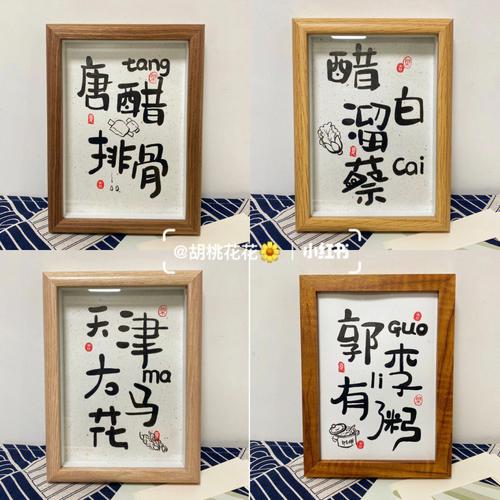 tang
唐醋
排骨
醋
溜白
蔡Cai
@胡桃花花🌻 | 小红书
天津
大ma
花马
郭guo
李li
有粥